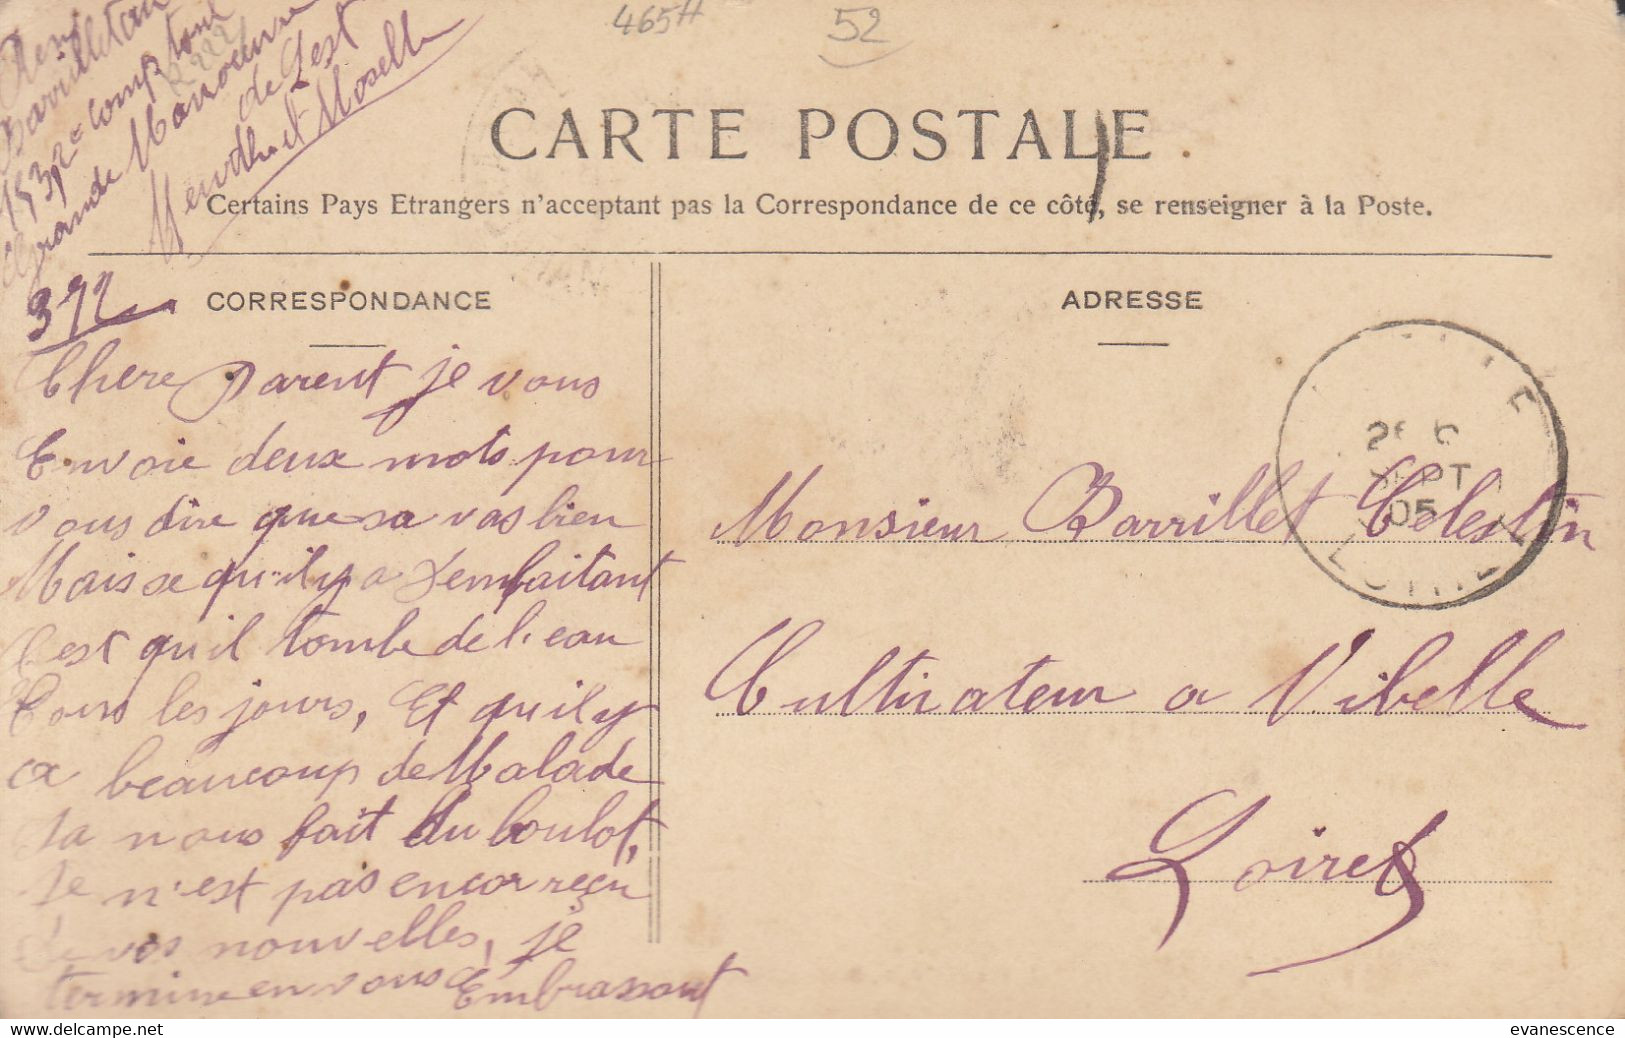 465H
52
Barrillet
comp
Grande Manoeuvre
de Lest
Meurthe et Moselle
372
CARTE POSTALE
Certains Pays Etrangers n'acceptant pas la Correspondance de ce côté, se renseigner à la Poste.
CORRESPONDANCE
Chere Parent je vous
Envoie deux mots pour
vous dire que sa vas bien
Mais se qu'il y a
C'est qu'il tombe de l'eau
tous les jours, Et qu'il y
a beaucoup de Malade
Sa nous fait du boulot,
Je n'est pas encor reçu
de vos nouvelles, je
termine en vous Embrassant
ADRESSE
SEPT
05
LOIRET
Monsieur Barrillet Celestin
Cultivateur a Vibelle
Loiret
evanescence